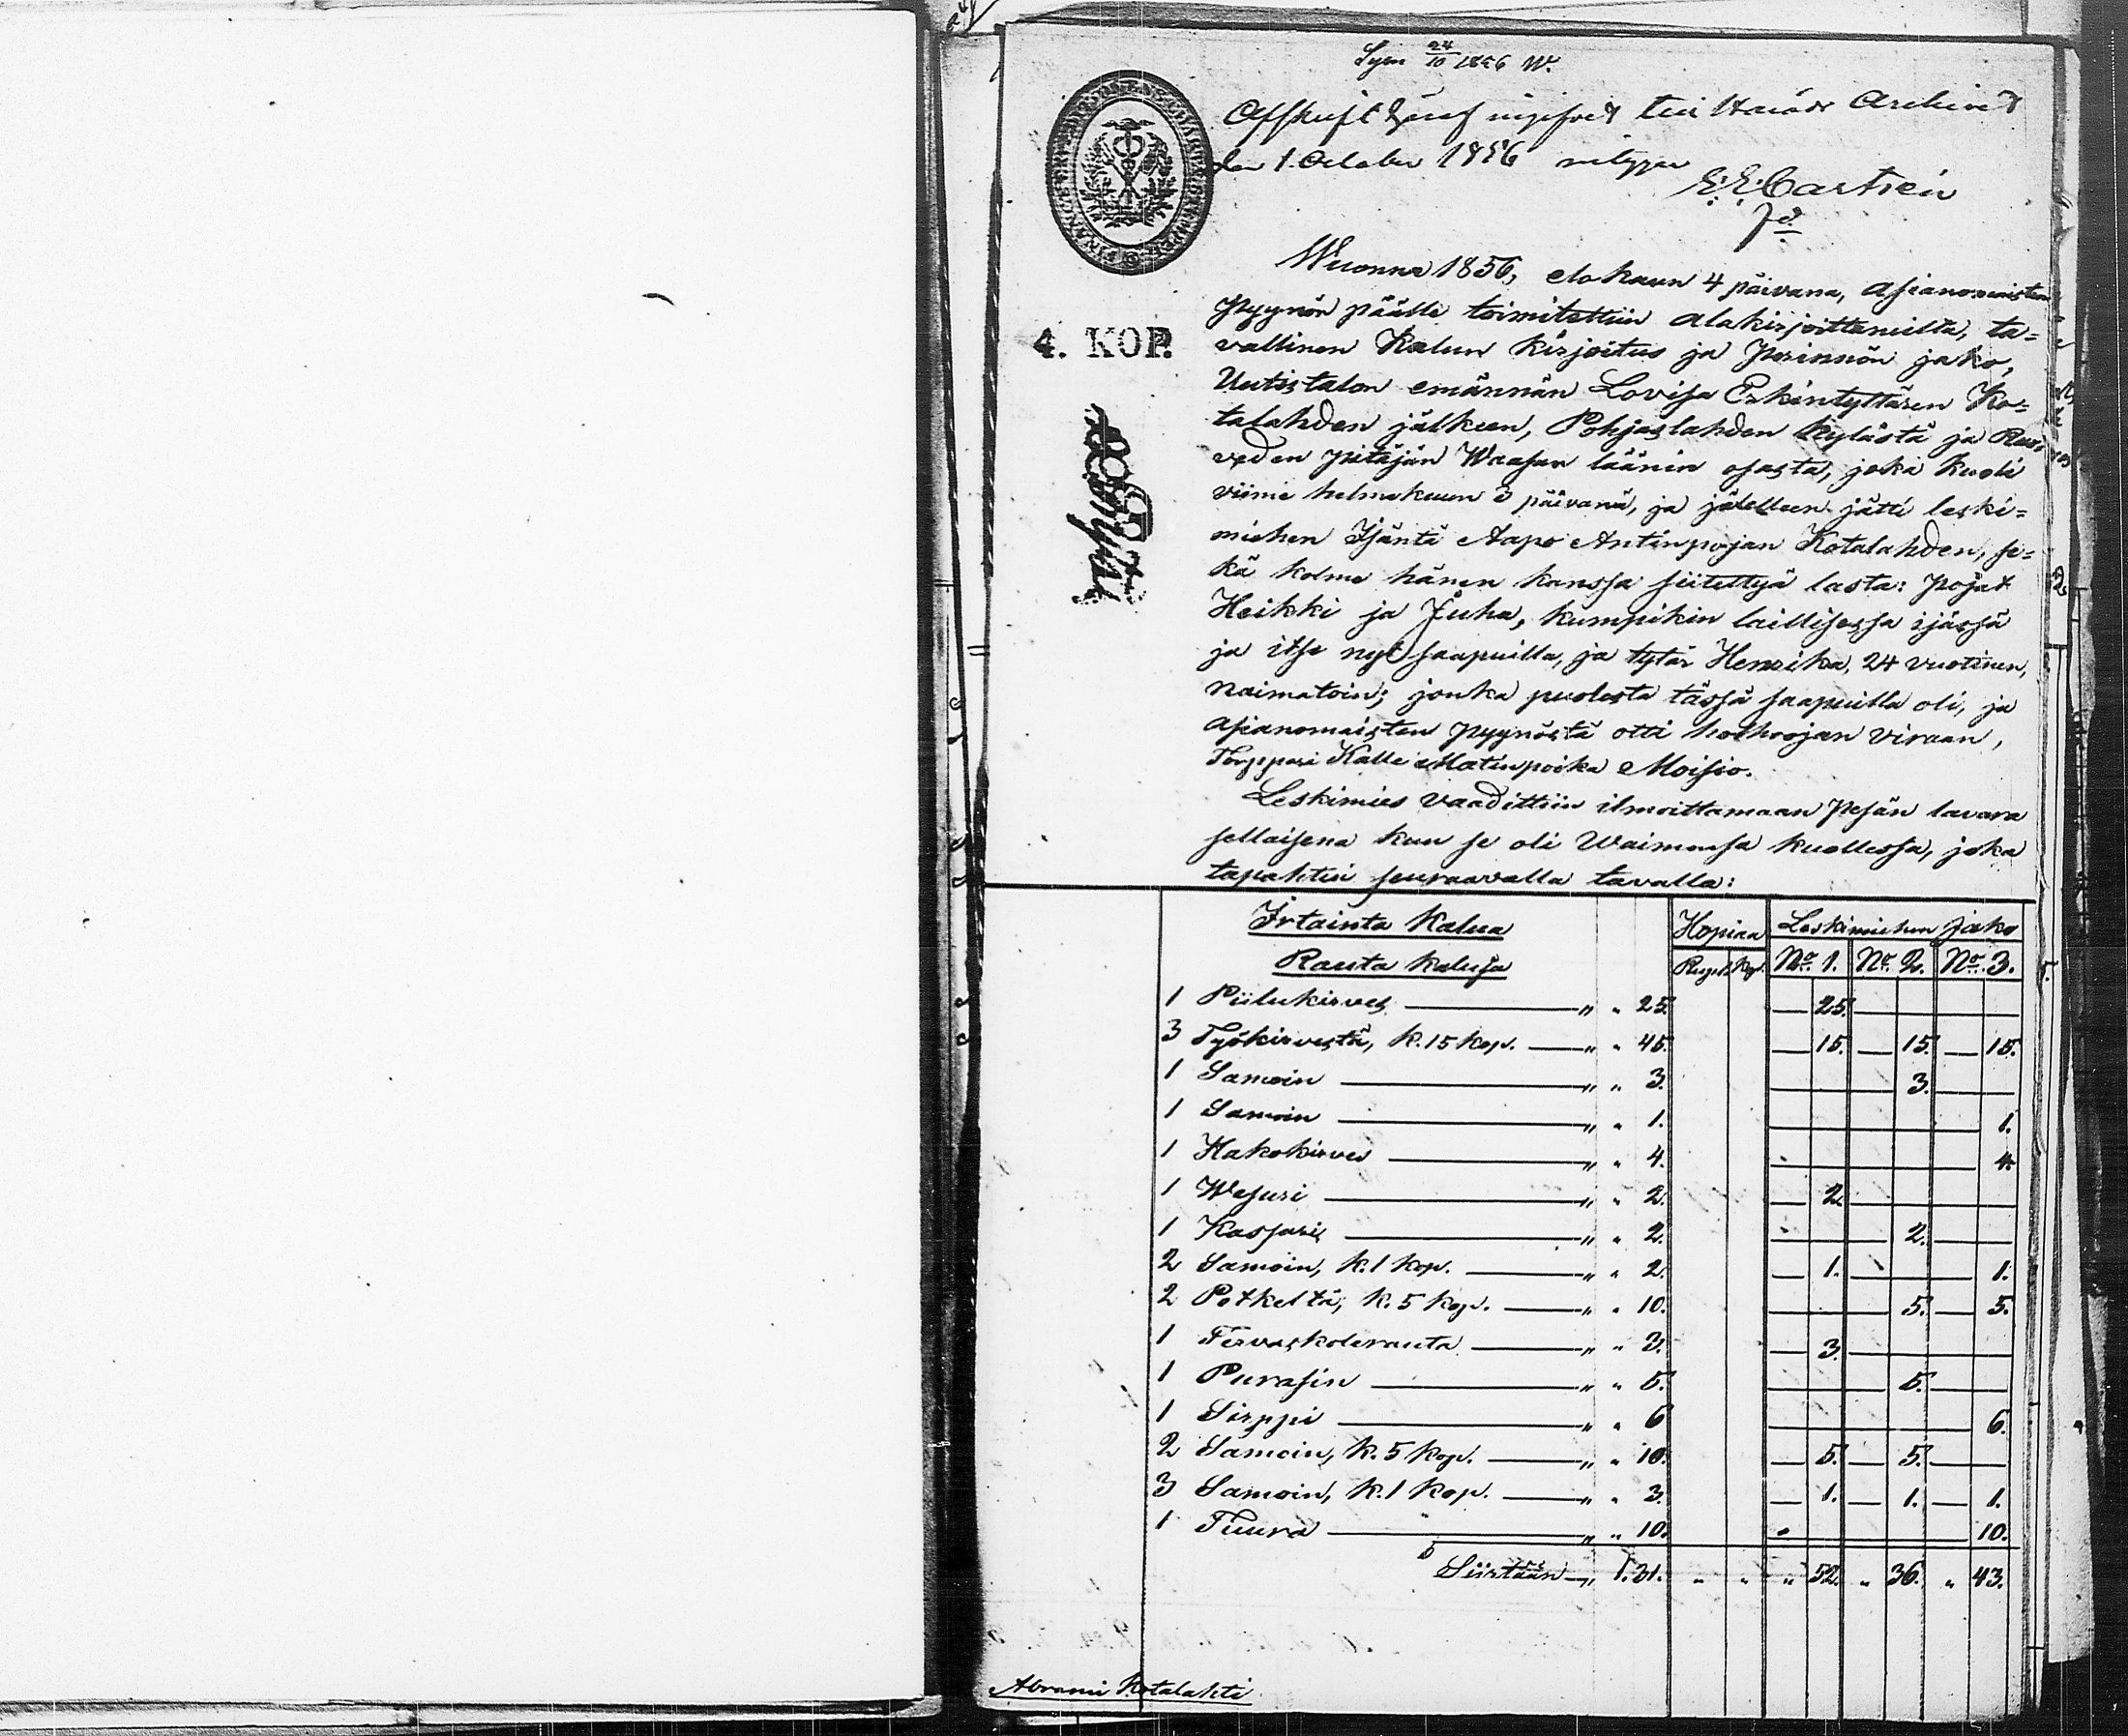 Syn 24/10 1856 W.
Afskrift häraf ingifvet till Härads Archivet
den 1. October 1856 intygar
E. E. Castrén
Wuonna 1856, elokuun 4 päivänä, asianomaisten
pyynön päälle toimitettiin alakirjoittaneilta, ta=
vallinen Kalun kirjoitus ja perinnön jako,
Uutistalon emännän Lovisa Erkintyttären Ko=
talahden jälkeen, Pohjaslahden kylästä ja Ruo=
veden pitäjän Waasan läänin osasta, joka kuoli
viime helmikuun päivänä, ja jälelleen jätti leski=
miehen Isäntä Aapo Antinpojan Kotalahden, se=
kä kolme hänen kanssa siitettyä lasta: pojat
Heikki ja Juha, kumpikin laillisessa ijässä
ja itse nyt saapuilla, ja tytär Henrika, 24 vuotinen,
naimatoin; jonka puolesta tässä saapuilla oli, ja
asianomaisten pyynöstä otti holhoojan viraan,
Torppari Kalle Matinpoika Moisio.
Leskimies vaadittiin ilmoittamaan pesän tavara
sellaisena kun se oli Waimonsa kuollessa, joka
tapahtui seuraavalla tavalla:
4. KOP.
Irtainta Kalua Hopiaa Leskimiehen jako
Rauta kaluja Rupl. Kop. No. 1. No. 2. No. 3.
1 Piilukirves — " " 25. — 25. —
3 Työkirvestä, k. 15 kop. — " " 45. — 15. — 15. — 15.
1 Samoin — " " 3. — 3. —
1 Samoin — " " 1. — 1.
1 Hakokirves — " " 4. — 4.
1 Wesuri — " " 2. — 2. —
1 Kassari — " " 2. — 2. —
2 Samoin, k. 1 kop. — " " 2. — 1. — 1.
2 Petkeltä, k. 5 kop. — " " 10. — 5. — 5.
1 Tervaskolurauta — " " 3. — 3. —
1 Purasin — " " 5. — 5. —
1 Sirppi — " " 6 — 6.
2 Samoin, k. 5 kop. — " " 10. — 5. — 5. —
3 Samoin, k. 1 kop. — " " 3. — 1. — 1. — 1.
1 Tuura — " " 10. — 10.
Siirtään — " 1. 31. " " " 52. " 36. " 43.
Abrami Kotalahti